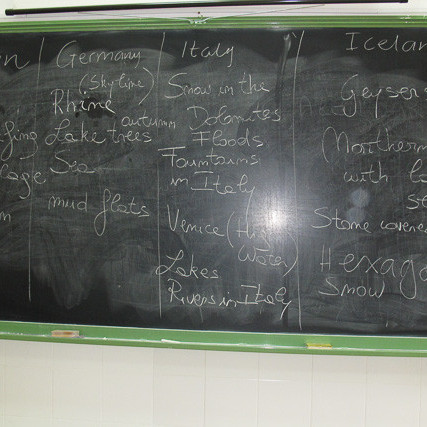 Germany
(Skyline)
Rhine
autumn
Lake trees
Sea
mud flats
Italy
Snow in the
Dolomites
Floods
Fountains
in Italy
Venice (High
Water)
Lakes
Rivers in Italy
Icelan
Geysers
(Northern
with
Stone covered
Hexago
Snow